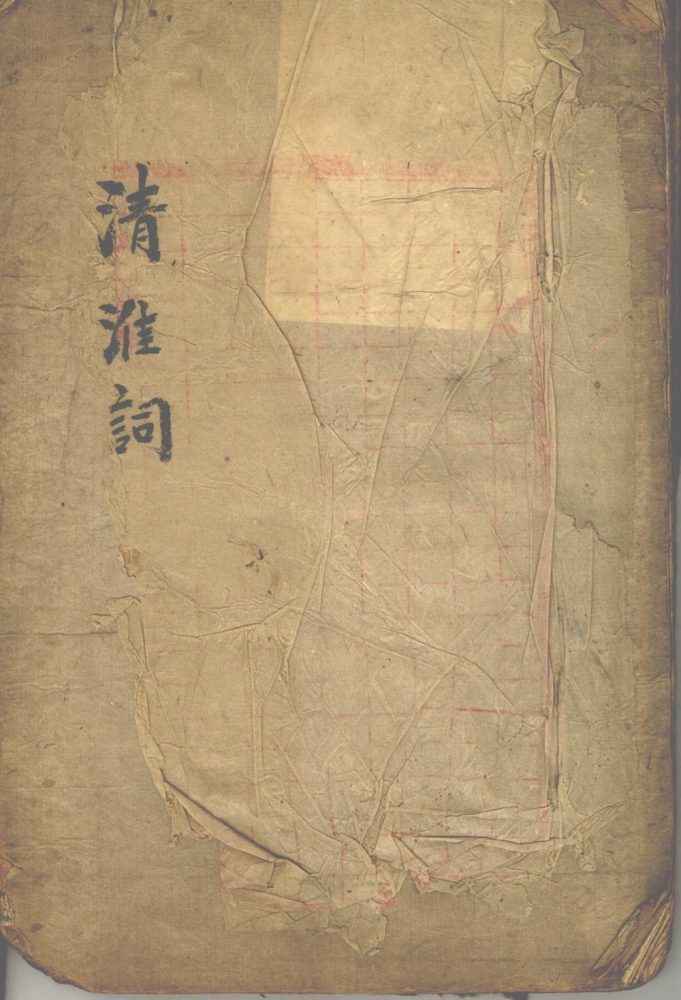 清淮詞